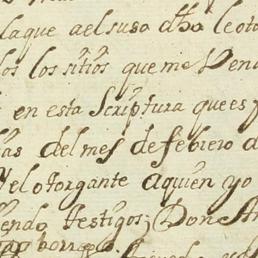 la que a el suso dha le oto
los los sitios que me Vend
en esta Scriptura que es f
ias del mes de febrero d
Y el otorgante a quien yo
iendo testigos; Don est